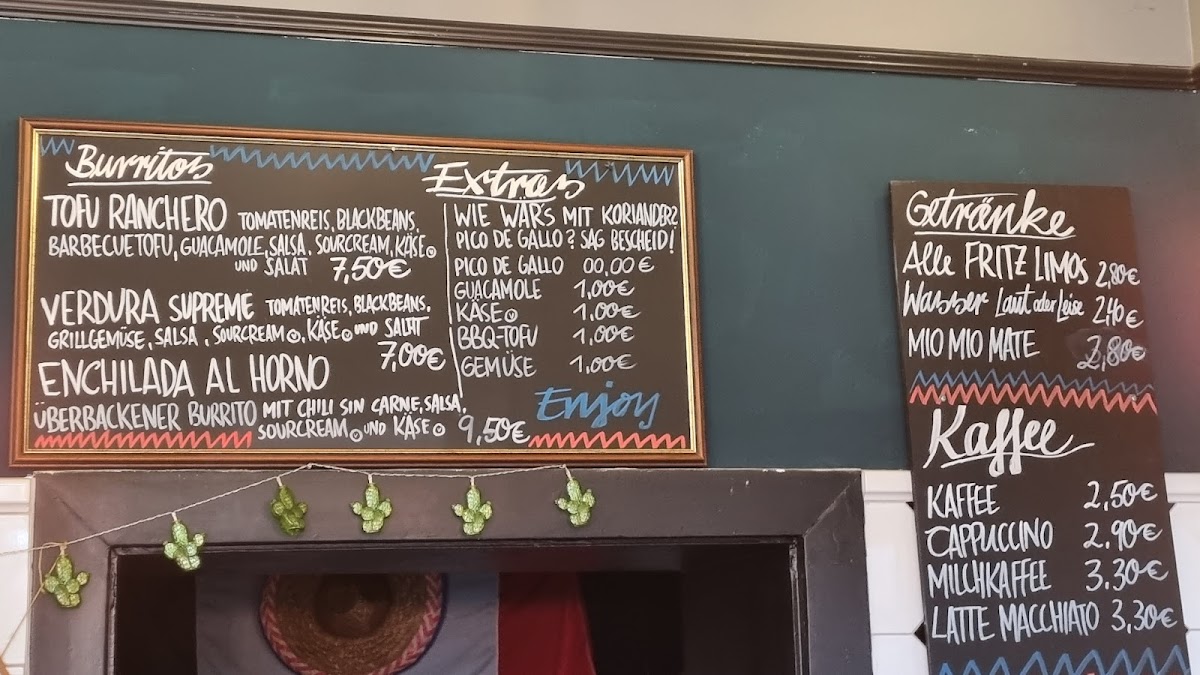 Burritos
TOFU RANCHERO TOMATENREIS, BLACKBEANS,
BARBECUETOFU, GUACAMOLE, SALSA, SOURCREAM, KÄSE
UND SALAT 7,50€
VERDURA SUPREME TOMATENREIS, BLACKBEANS,
GRILLGEMÜSE, SALSA, SOURCREAM, KÄSE UND SALAT
7,00€
ENCHILADA AL HORNO
ÜBERBACKENER BURRITO MIT CHILI SIN CARNE, SALSA,
SOURCREAM UND KÄSE 9,50€
Extras
WIE WÄR'S MIT KORIANDER?
PICO DE GALLO? SAG BESCHEID!
PICO DE GALLO 00,00€
GUACAMOLE 1,00€
KÄSE 1,00€
BBQ-TOFU 1,00€
GEMÜSE 1,00€
Enjoy
Getränke
Alle FRITZ LIMOS 2,80€
Wasser Laut oder Leise 2,40€
MIO MIO MATE 2,80€
Kaffee
KAFFEE 2,50€
CAPPUCCINO 2.90€
MILCHKAFFEE 3.30€
LATTE MACCHIATO 3,30€